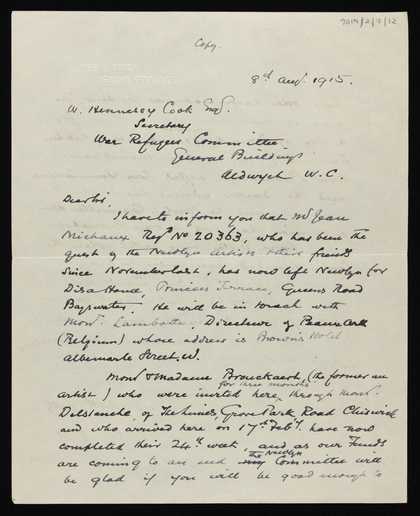 Copy.
8th Aug. 1915.
W. Hennessy Cook Esq.
Secretary
War Refugees Committee
General Buildings
Aldwych W.C.
Dear Sir,
I have to inform you that M. Jean
Michaux Regd No 20363, who has been the
guest of the Newlyn Artists & their friends
since November last, has now left Newlyn for
Terrace, Queens Road
Bayswater. He will be in touch with
Monr. Lambotte, Directeur of Beaux Arts
(Belgium) whose address is Brown's Hotel
Albemarle Street, W.
Monr & Madame Brouckaert, (the former an
artist) who were invited here for three months through Monr.
Delstanche, of The Limes, Grove Park Road Chiswick
and who arrived here on 17th Feby. have now
completed their 24th week, and as our Funds
are coming to an end the Newlyn Committee will
be glad if you will be good enough to